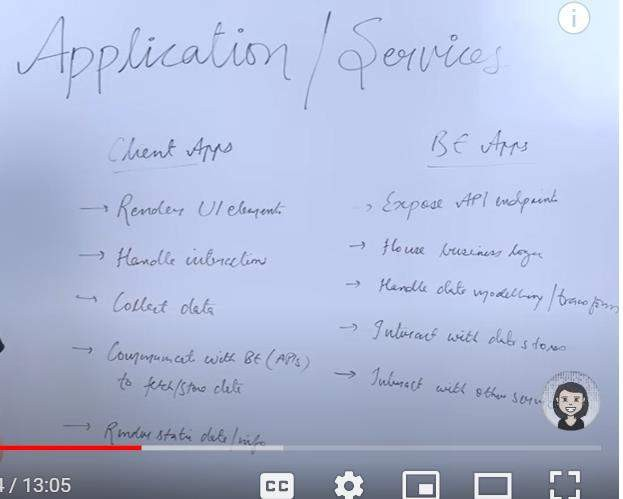 Application / Services
Client Apps
→ Renders UI elements
→ Handle interaction
→ Collect data
→ Communicate with BE (APIs)
to fetch/store data
→ Render static data/info
BE Apps
→ Expose API endpoints
→ House business logic
→ Handle data modelling/transform
→ Interact with data stores
→ Interact with other
i
4 / 13:05
CC